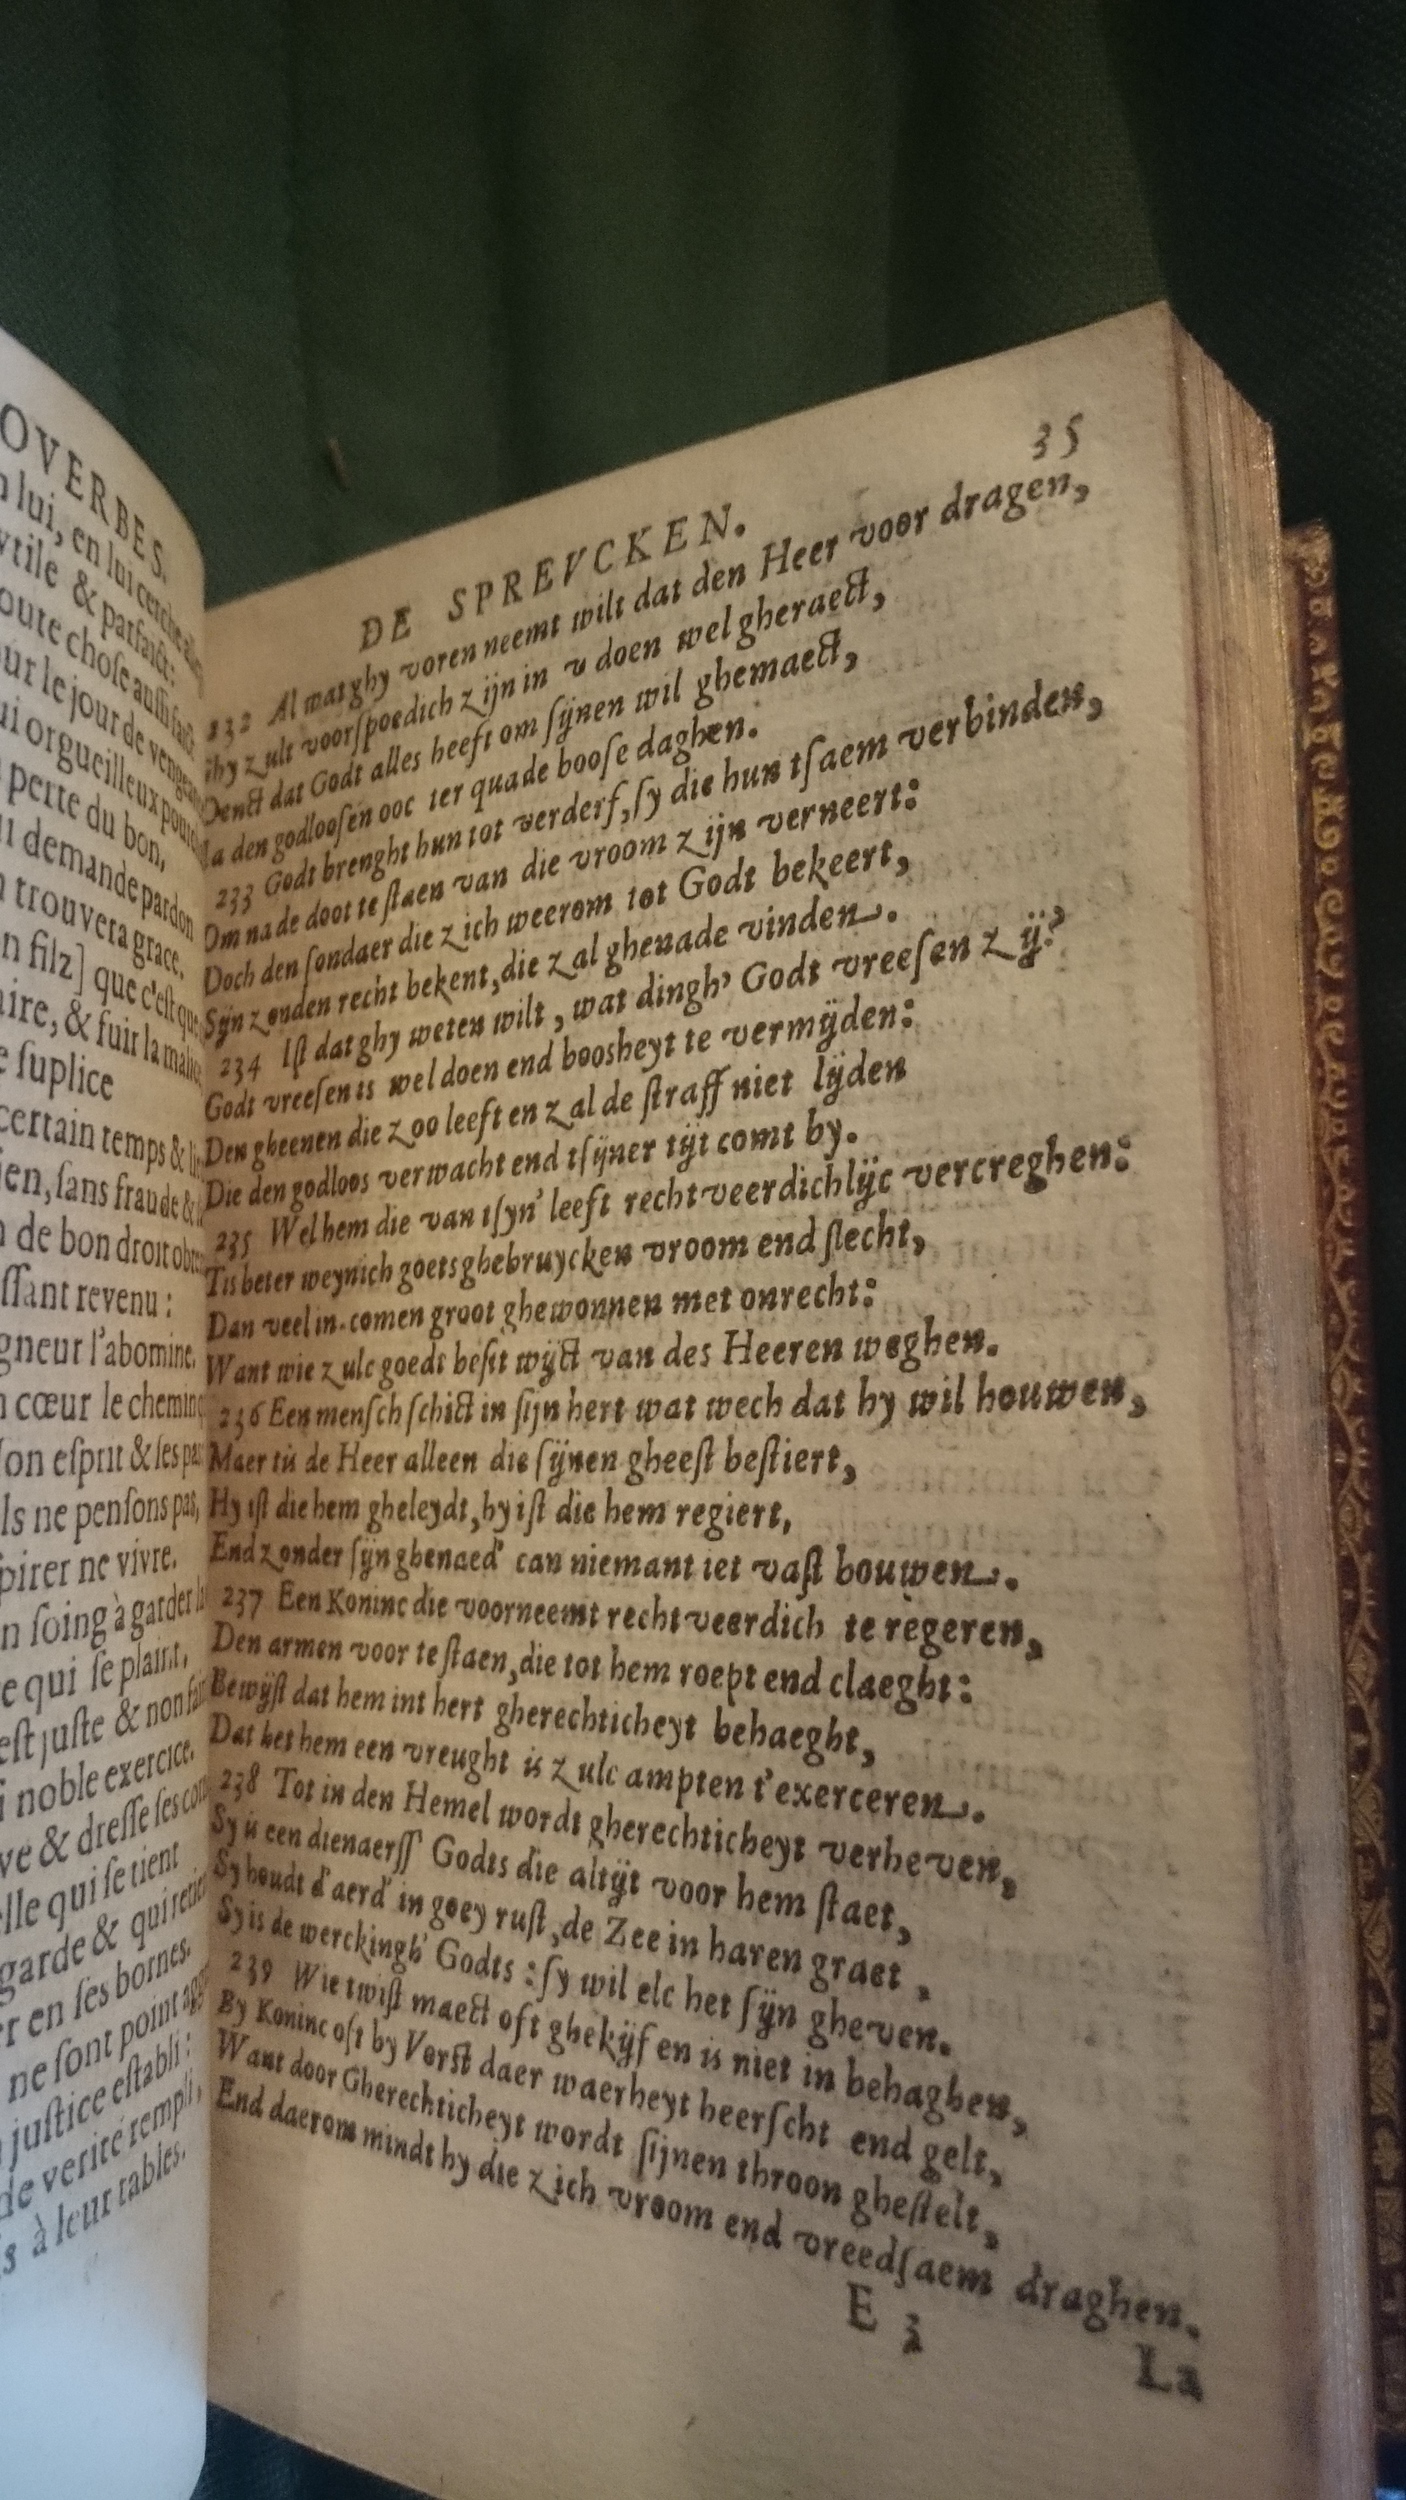 OVERBES.
lui, en lui cerche
vtile & parfaict:
oute chose aussi
ur le jour de
ui orgueilleux
perte du bon,
demande pardon
trouvera grace.
n filz] que c'est que
aire, & fuir la malice
e suplice
certain temps &
ien, sans fraude &
de bon droit
ssant revenu :
gneur l'abomine.
cœur le chemin
son esprit & ses
ls ne pensons pas,
pirer ne vivre.
n soing à garder
e qui se plaint,
est juste & non
i noble exercice.
ve & dresse ses
elle qui se tient
garde & qui
r en ses bornes.
ne sont point
justice establi :
de verité rempli,
s à leur tables.
DE SPREVCKEN. 35
232 Al wat ghy voren neemt wilt dat den Heer voor dragen,
ghy zult voorſpoedich zijn in u doen wel gheraect,
Denct dat Godt alles heeft om ſijnen wil ghemaect,
Ia den godlooſen ooc ter quade booſe daghen.
233 Godt brenght hun tot verderf, ſy die hun tſaem verbinden,
Om na de doot te ſtaen van die vroom zijn verneert:
Doch den ſondaer die zich weerom tot Godt bekeert,
Sijn zonden recht bekent, die zal ghenade vinden.
234 Iſt dat ghy weten wilt, wat dingh' Godt vreeſen zy?
Godt vreeſen is wel doen end boosheyt te vermijden:
Den gheenen die zoo leeft en zal de ſtraff niet lijden
Die den godloos verwacht end tſijner tijt comt by.
235 Wel hem die van tſyn' leeft rechtveerdichlijc vercreghen:
Tis beter weynich goets ghebruycken vroom end ſlecht,
Dan veel in-comen groot ghewonnen met onrecht:
Want wie zulc goedt beſit wijct van des Heeren weghen.
236 Een menſch ſchict in ſijn hert wat wech dat hy wil houwen,
Maer tis de Heer alleen die ſijnen gheeſt beſtiert,
Hy iſt die hem gheleydt, hy iſt die hem regiert,
End zonder ſijn ghenaed' can niemant iet vaſt bouwen.
237 Een Koninc die voorneemt rechtveerdich te regeren,
Den armen voor te ſtaen, die tot hem roept end claeght:
Bewijſt dat hem int hert gherechticheyt behaeght,
Dat het hem een vreught is zulc ampten t'exerceren.
238 Tot in den Hemel wordt gherechticheyt verheven,
Sy is een dienaerſſ' Godts die altijt voor hem ſtaet,
Sy houdt d'aerd' in goey ruſt, de Zee in haren graet.
Sy is de werckingh' Godts : ſy wil elc het ſijn gheven.
239 Wie twiſt maect oft ghekijf en is niet in behaghen,
By Koninc oft by Vorſt daer waerheyt heerſcht end gelt,
Want door Gherechticheyt wordt ſijnen throon gheſtelt,
End daerom mindt hy die zich vroom end vreedſaem draghen.
E 3
La